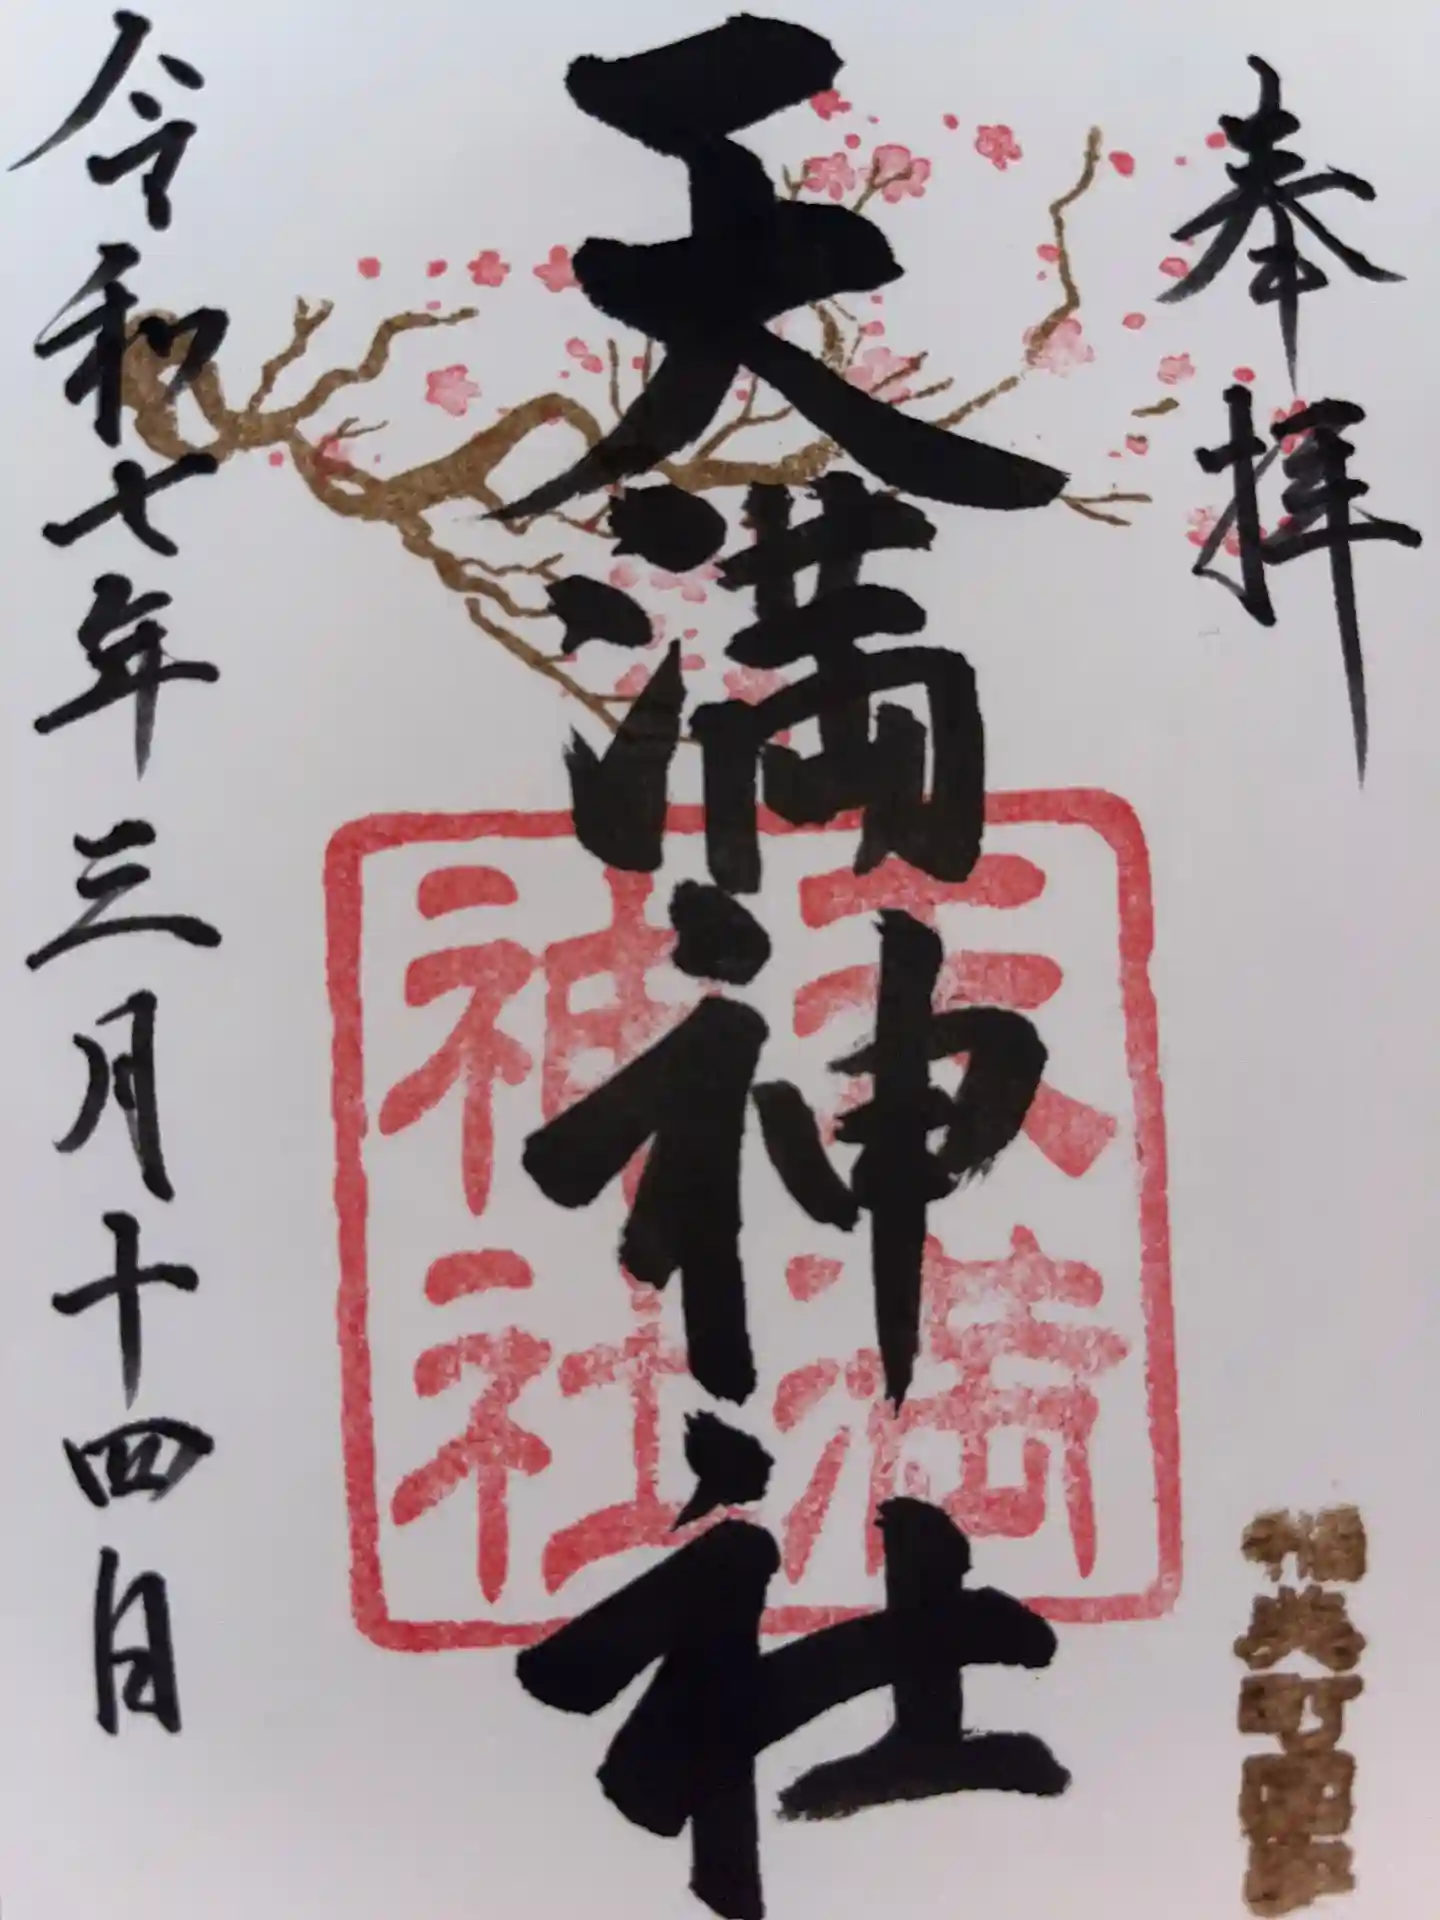 奉拝
天満神社
天満
神社
令和七年三月十四日